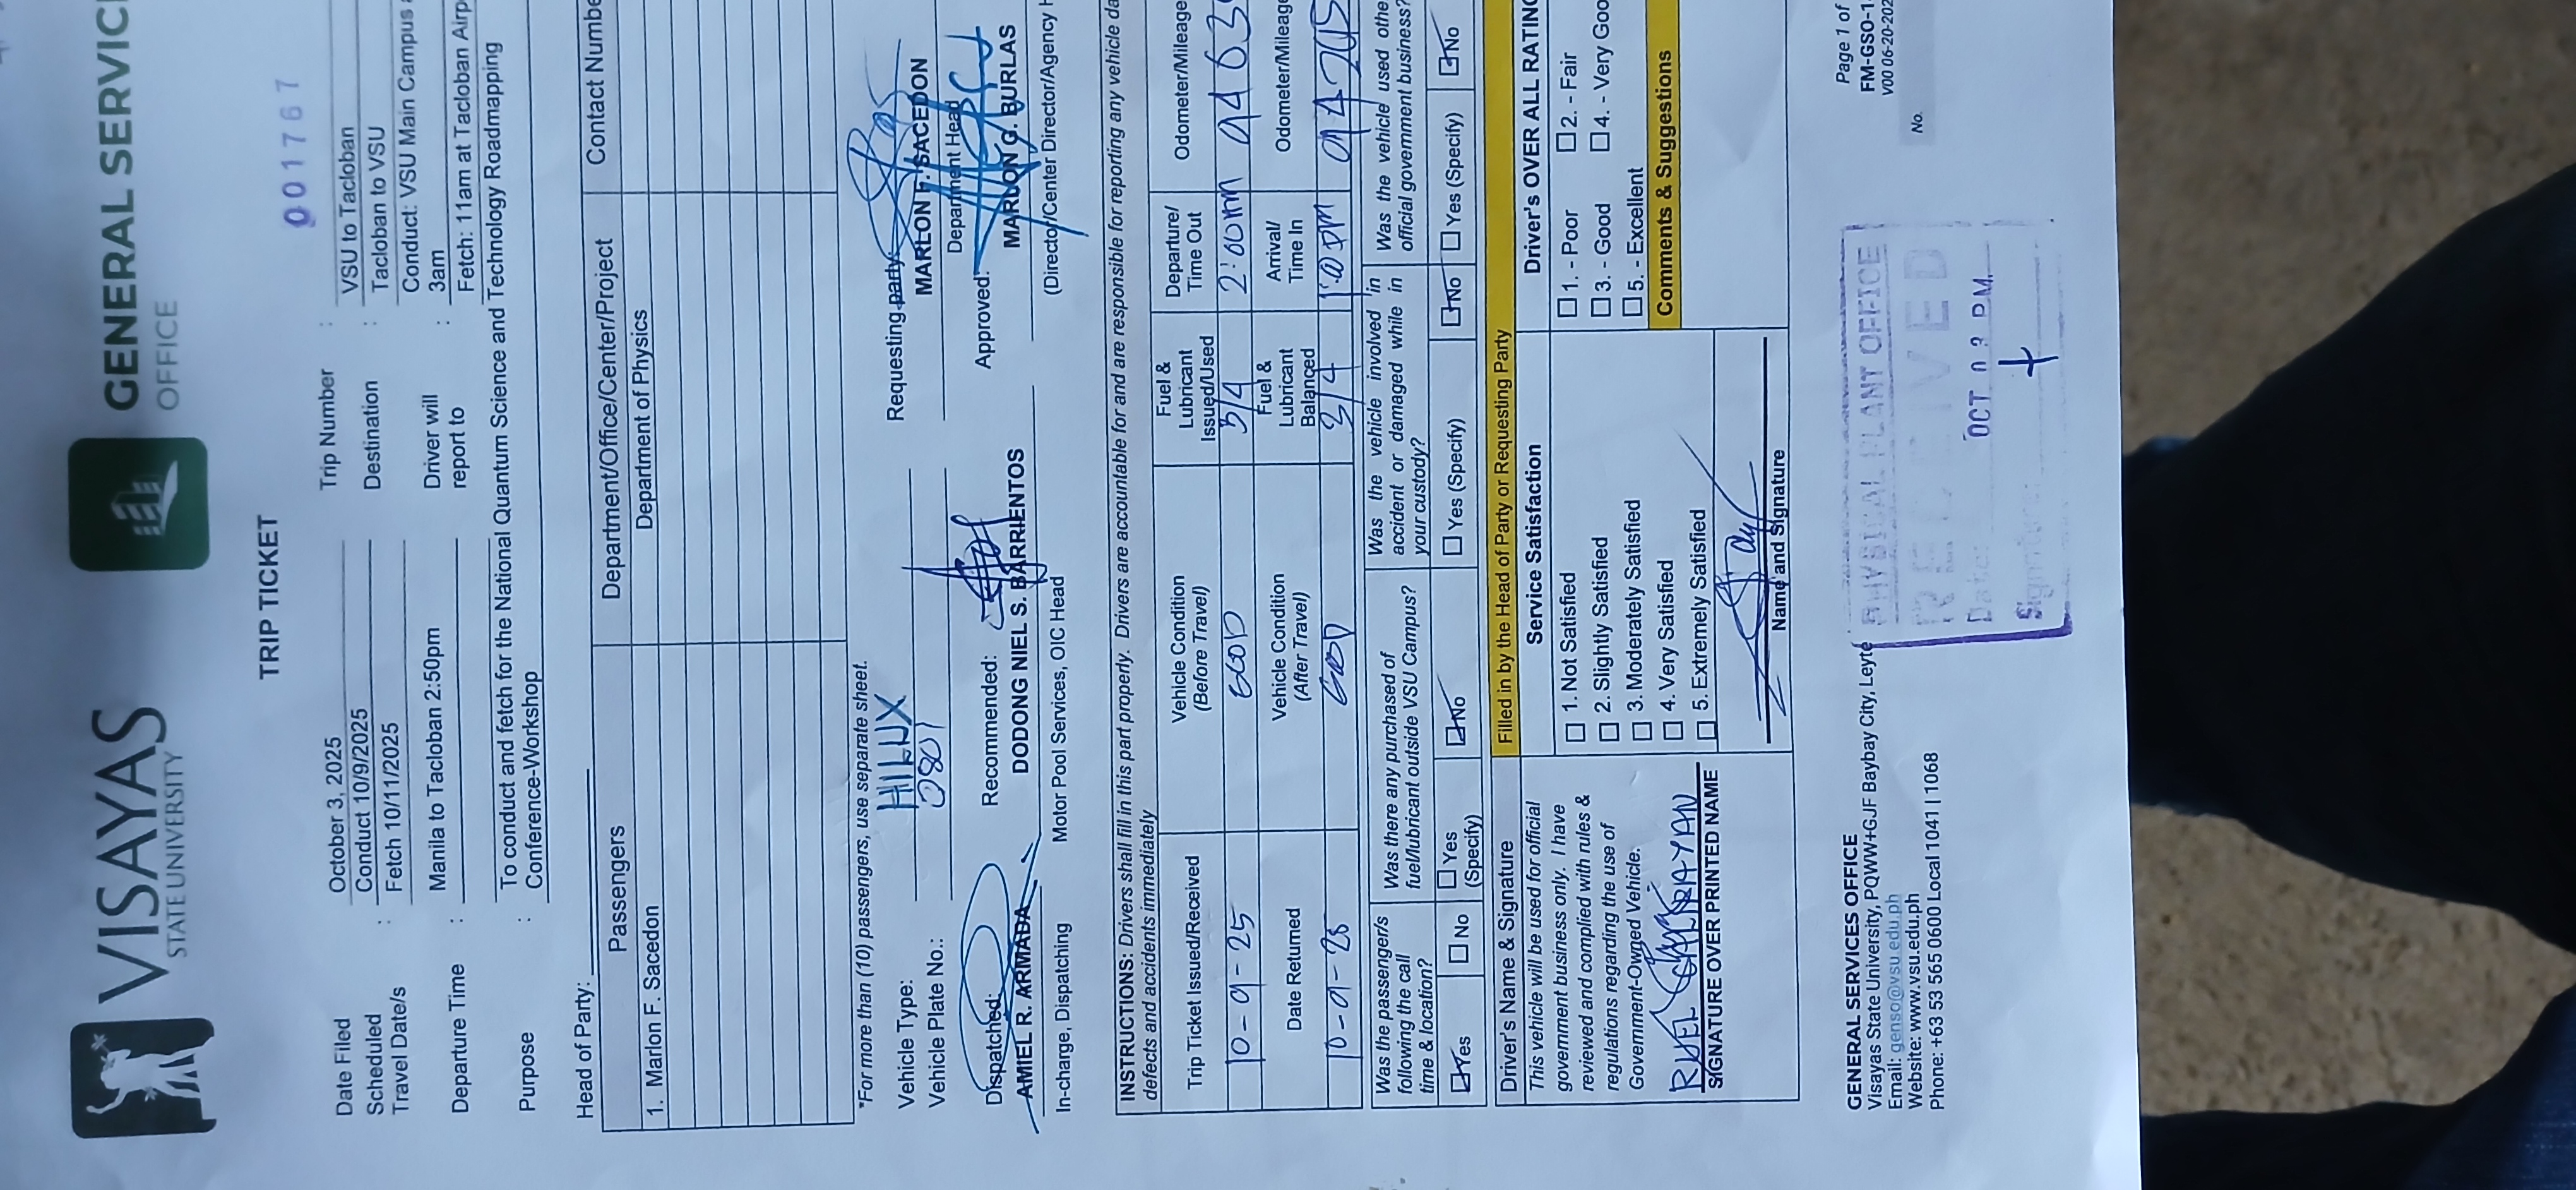 VISAYAS
STATE UNIVERSITY
GENERAL SERVIC
OFFICE
TRIP TICKET
001767
Date Filed October 3, 2025
Trip Number : VSU to Tacloban
Scheduled Travel Date/s : Conduct 10/9/2025
Fetch 10/11/2025
Destination : Tacloban to VSU
Conduct: VSU Main Campus
3am
Departure Time : Manila to Tacloban 2:50pm
Driver will report to : Fetch: 11am at Tacloban Airp
Purpose : To conduct and fetch for the National Quantum Science and Technology Roadmapping
Conference-Workshop
Head of Party:
Passengers Department/Office/Center/Project Contact Numbe
1. Marlon F. Sacedon Department of Physics
*For more than (10) passengers, use separate sheet.
Vehicle Type: HILUX
Vehicle Plate No.: 0801
Requesting party:
MARLON F. SACEDON
Department Head
Dispatched:
AMIEL R. ARMADA
In-charge, Dispatching
Recommended:
DODONG NIEL S. BARRIENTOS
Motor Pool Services, OIC Head
Approved:
MARLON G. BURLAS
(Director/Center Director/Agency H
INSTRUCTIONS: Drivers shall fill in this part properly. Drivers are accountable for and are responsible for reporting any vehicle da
defects and accidents immediately
Trip Ticket Issued/Received Vehicle Condition (Before Travel) Fuel & Lubricant Issued/Used Departure/ Time Out Odometer/Mileage
10-9-25 3/4 2:00
Date Returned Vehicle Condition (After Travel) Fuel & Lubricant Balanced Arrival/ Time In Odometer/Mileage
10-9-25 3/4
Was the passenger/s following the call time & location?
Yes No
Was there any purchased of fuel/lubricant outside VSU Campus?
Yes (Specify) No
Was the vehicle involved in accident or damaged while in your custody?
Yes (Specify) No
Was the vehicle used othe official government business?
Yes (Specify) No
Driver's Name & Signature
This vehicle will be used for official
government business only. I have
reviewed and complied with rules &
regulations regarding the use of
Government-Owned Vehicle.
SIGNATURE OVER PRINTED NAME
Filled in by the Head of Party or Requesting Party
Service Satisfaction
1. Not Satisfied
2. Slightly Satisfied
3. Moderately Satisfied
4. Very Satisfied
5. Extremely Satisfied
Name and Signature
Driver's OVER ALL RATING
1. - Poor 2. - Fair
3. - Good 4. - Very Goo
5. - Excellent
Comments & Suggestions
GENERAL SERVICES OFFICE
Visayas State University, PQWW+GJF Baybay City, Leyte
Email: genso@vsu.edu.ph
Website: www.vsu.edu.ph
Phone: +63 53 565 0600 Local 1041 | 1068
PHYSICAL PLANT OFFICE
RECEIVED
Date:
OCT 03 PM
Signature:
Page 1 of
FM-GSO-1
V00 06-20-202
No.